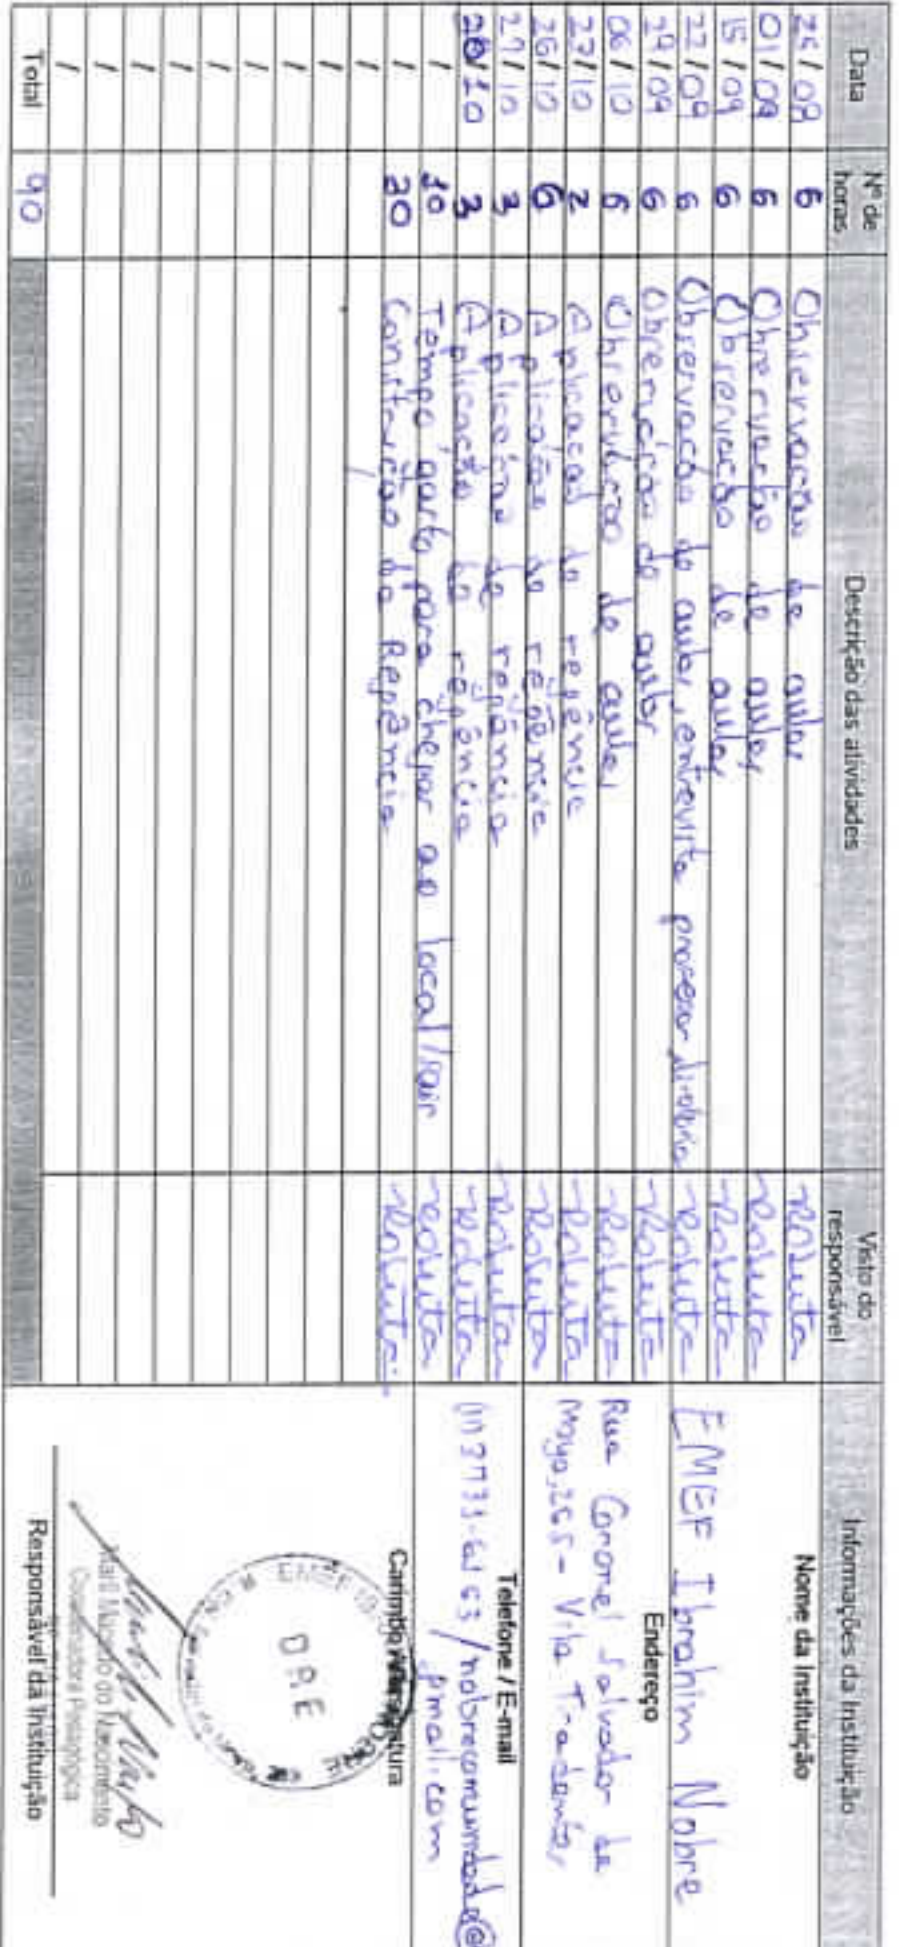 Data Nº de horas Descrição das atividades Visto do responsável Informações da Instituição
25/08 6 Observação de aula Roberta
01/09 6 Observação de aula Roberta
15/09 6 Observação de aula Roberta
22/09 6 Observação de aula, entrevista professor, diretoria Roberta
29/09 6 Observação de aula Roberta
06/10 6 Observação de aula Roberta
23/10 2 Aplicação de regência Roberta
26/10 6 Aplicação de regência Roberta
27/10 3 Aplicação de regência Roberta
20/10 3 Aplicação de regência Roberta
/ 10 Tempo gasto para chegar ao local/sair Roberta
/ 20 Construção da Regência Roberta
/
/
/
/
/
/
/
/
/
Total 90
Nome da Instituição
EMEF Ibrahim Nobre
Endereço
Rua Coronel Salvador de
Moya, 265 - Vila Tiradentes
Telefone / E-mail
(11) 3733-6163 / nobrecomunidade@
gmail.com
Carimbo / Assinatura
DRE
Marli Macedo do Nascimento
Coordenadora Pedagógica
Responsável da Instituição